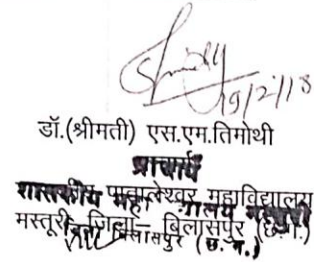 19/2/18
डॉ.(श्रीमती) एस.एम.तिमोथी
प्राचार्य
शासकीय पातालेश्वर महाविद्यालय
मस्तूरी जिला– बिलासपुर (छ.ग.)
बिलासपुर (छ. ग.)